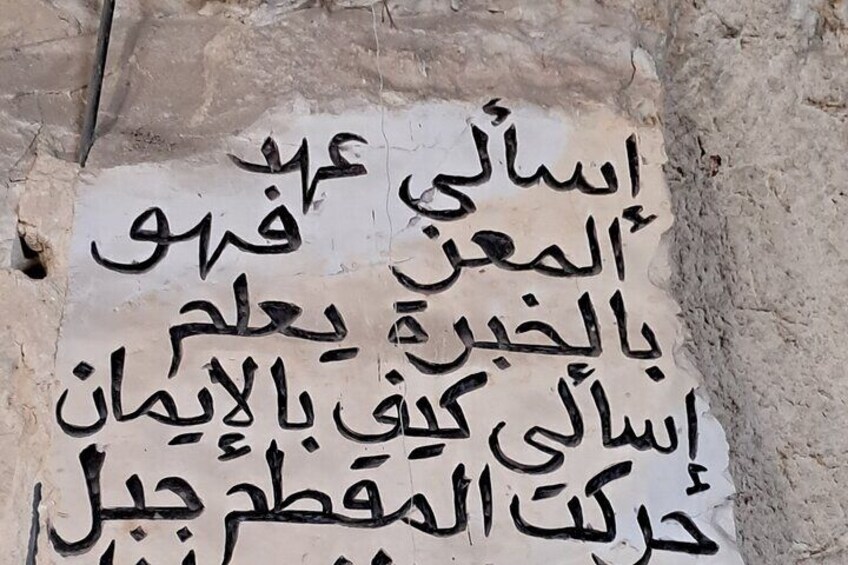 إسألي عهد
المعز فهو
بالخبرة يعلم
إسألي كيف بالإيمان
حركت المقطم جبل